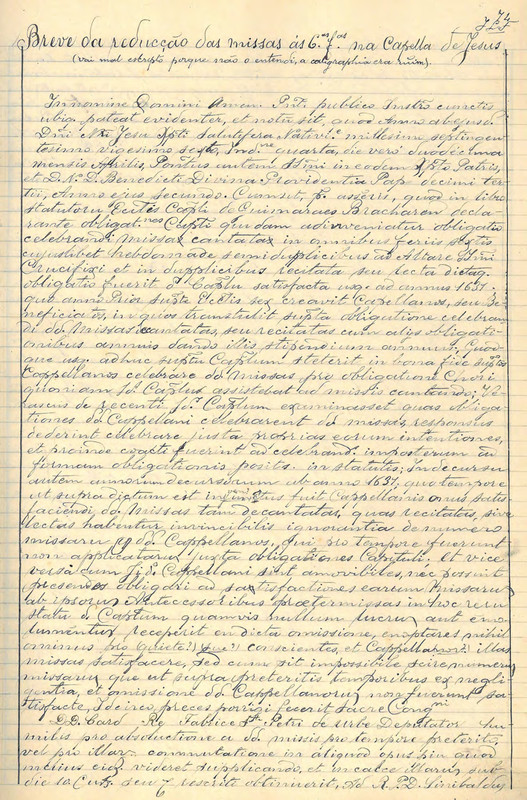 74
Breve da reducção das missas ás 6.as f.as na Capella de Jesus
(vai mal escripto porque não o entendi, a caligraphia era ruim).
In nomine Domini Amen. Pnti publico Instro cunctis
ubiq. pateat evidenter, et notu sit, quod Anno ab ejusd.
Dni Nri Jesu Xpti salutifera Nativi.e millesimo septingen-
tesimo vigesimo sexto, Ind.ne quarta, die vero duodecima
mensis Aprilis, Pontus autem Stmi in eodem Xpto Patris,
et D. N. D. Benedicti Divina Providentia Pap. decimi ter-
tii, Anno ejus secundo. Cum sit, p. asseris, quod in libro
statutoru Ecttes Capli de Guimaraes Bracharen decla-
rante obligat.nes Captli quidam adinveniatur obligatio
celebrandi missas cantatas in omnibus feriis sextis
cujuslibet hebdomade semiduplicibus ad Altare Stmi
Crucifixi et in duplicibus recitata seu lecta dictaq.
obligatio fuerit p. Caplu satisfacta usq. ad annus 1637.
quo anno Dria supta Electis sex creavit Capellanos, seu Be-
neficiatos, in quos transtulit supta obligatione celebran
di do Missas cantatas, seu recitatas cum alijs obligati-
onibus annuis dando illis stipendium annuum, Quod-
que usq. adhuc suptu Caplum steterit in bona fide suptos
cappellanos celebrare do missas pro obligatione Chori
quoniam do Caplus assistebat ad missis cantandis;
de recenti Caplum examinasset quas obliga-
tiones do Cappellani celebrarent do missis, responsus
dederint celebrare justa proprias eorum intentiones,
et proinde coacti fuerint ad celebrand. imposterum
formam obligationis posito in statutis; In decursu
autem annorum decursorum ab anno 1637, quo tempore
ut supra dictum est inventus fuit Cappellanis onus satis-
faciendi do Missas tam decantatas, quas recitatas, sive
lectas habentur invincibilis ignorantia de numero
missaru do Cappellanos, qui pro tempore fuerunt
non applicataru juxta obligationes Capituli, et vice
versa cum Cappellani sint amovibiles, nec possint
presendes obligari ad satisfactiones earum Missaru
ab ipsoru Antecessoribus praetermissas in hoc reru
statu do Caplum quamvis nullum lucru, aut emo-
lumentu receperit en dicta omissione, enoptares nihil
ominus conscientes, et Cappellanor. illas
missas satisfacere, sed cum sit impossibile scire numeru
missaru que ut supra preteritis temporibus ex negli
gentia, et omissione do Cappellanoru non fuerunt sa-
tisfacte, Idcirco, preces porrigi fecerit Sacre Congni
D.D. Card Re Fabrice Sti Petri de Urbe Deputator hu-
milis pro absolutione a do missis pro tempore preterit.
vel pro illar. commutatione in aliquod opus piu quod
melius eid. videret supplicando, et in calce illarus sub
die 10 seu rescrito obtinuerit, Ad R.P.D. Sinibaldus